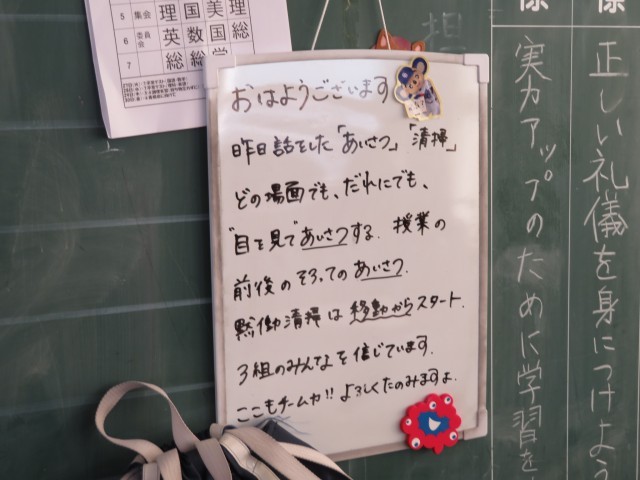 5 集会 理 国 美 理
6 委員会 英 数 国 総
7 総 総 学
おはようございます
昨日話をした「あいさつ」「清掃」
どの場面でも、だれにでも、
"目を見て"あいさつする. 授業の
前後のそろってのあいさつ.
黙働清掃は移動からスタート.
3組のみんなを信じています.
ここもチーム力!! よろしくたのみますよ.
様
正しい礼儀を身につけよう
様
実力アップのために学習を